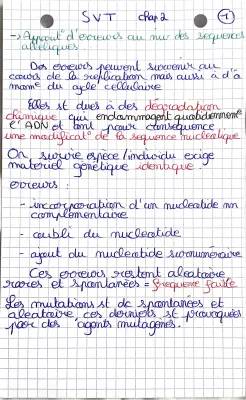 SVT chap 2 -1
-> Apport d'erreurs au niv des sequences alléliques
Des erreurs peuvent survenir au
cours de la replication mais aussi à d'à
mome du cycle cellulaire
Elles st dues à des dégradation
chimique qui endommagent quotidiennemt
l'ADN et ont pour conséquence
une modificat° de la sequence nucléotique
On survie espèce/individu exige
materiel génétique identique
erreurs :
- incorporation d'un nucleotide nn
complementaire
- oubli du nucleotide
- ajout du nucleotide surnuméraire
Ces erreurs restent aleatoire
rares et spontanées = frequence faible
Les mutations st dc spontanées et
aleatoire, ces derniers st provoquées
par des agents mutagènes.